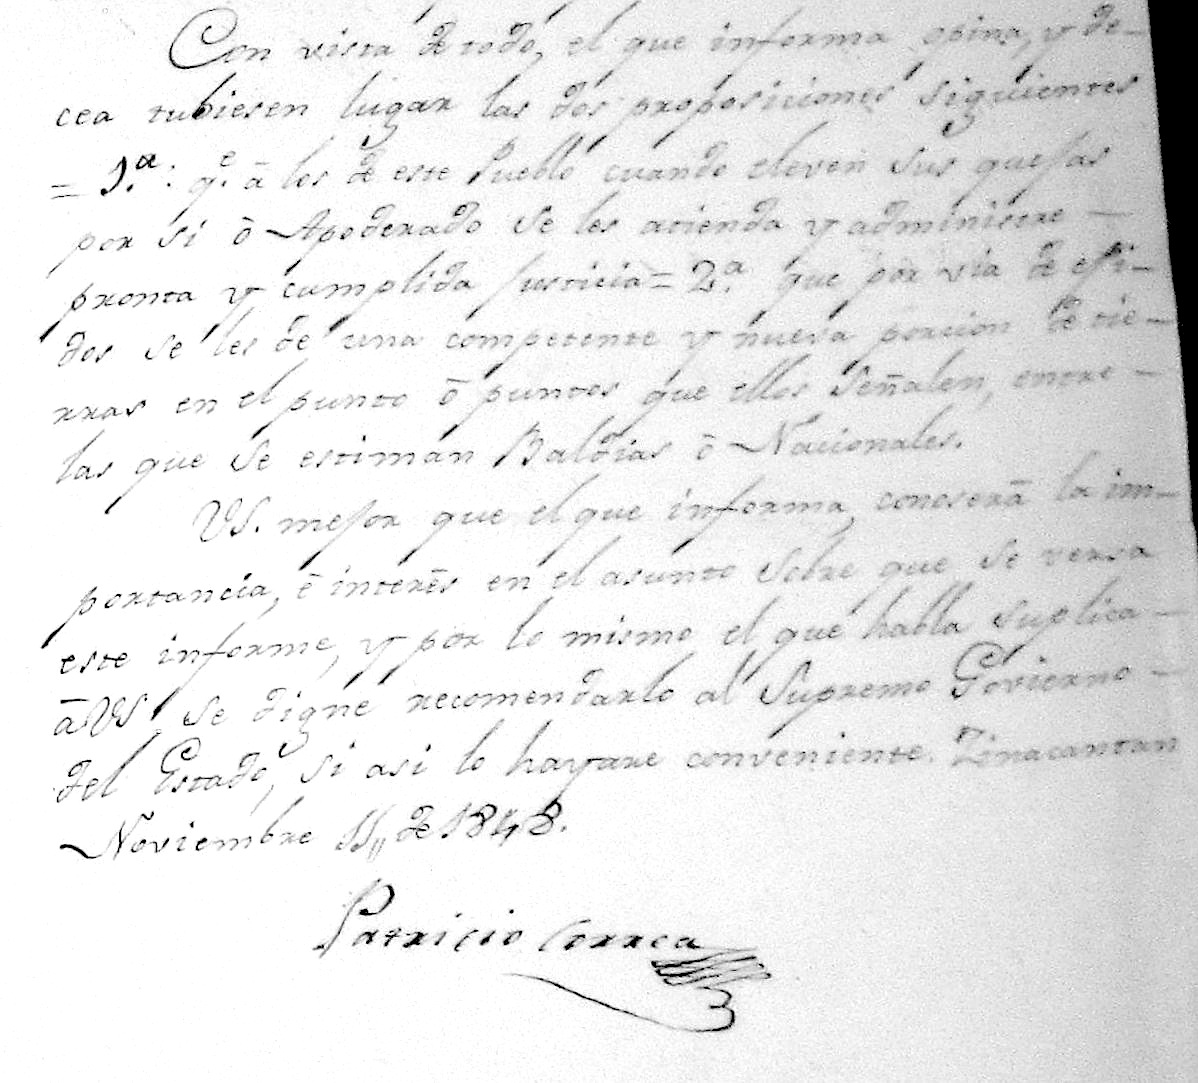 Con vista de todo, el que informa opina, y de-
cea tubiesen lugar las dos proposiciones siguientes
= 1.ª: q.e ā los de este Pueblo cuando eleven sus quejas
por si ō Apoderado se les atienda y administre —
pronta y cumplida justicia = 2.ª que por via de eji-
dos se les de una competente y nueva porcion de tie-
rras en el punto ō puntos que ellos señalen, entre -
las que se estiman Baldias ō Nacionales.
VS. mejor que el que informa, conoserā la im-
portancia, ē interēs en el asunto sobre que se versa
este informe, y por lo mismo el que habla suplica -
ā VS. se digne recomendarlo al Supremo Govierno -
del Estado, si asi lo hayare conveniente. Zinacantan
Noviembre 11,, de 1848.
Patricio Correa